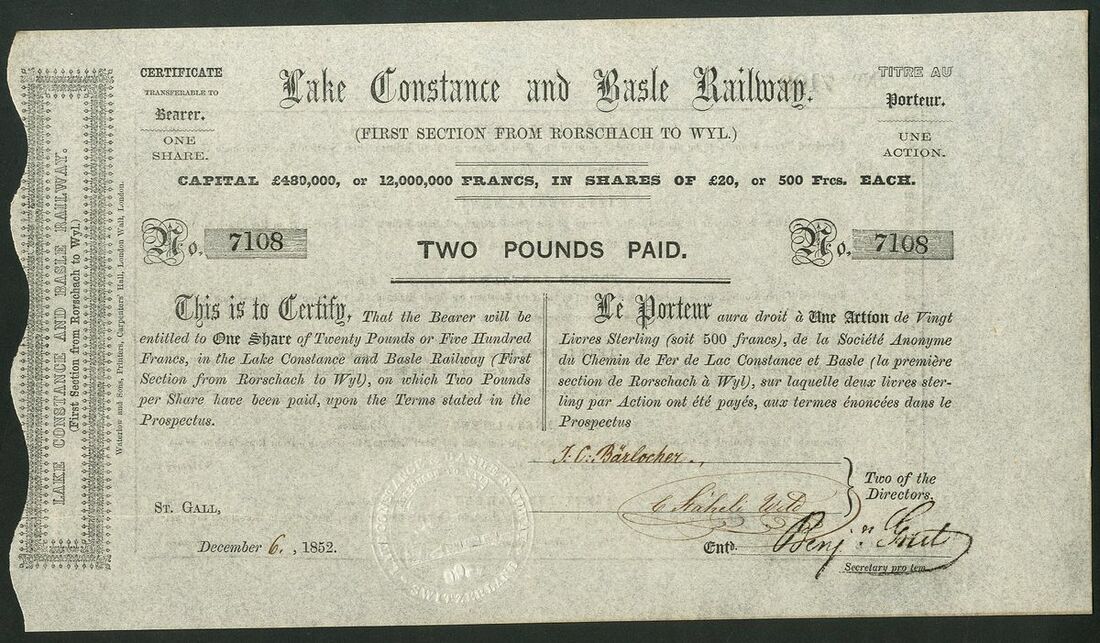 LAKE CONSTANCE AND BASLE RAILWAY.
(First Section from Rorschach to Wyl.)
Waterlow and Sons, Printers, Carpenters' Hall, London Wall, London.
CERTIFICATE
TRANSFERABLE TO
Bearer.
ONE
SHARE.
Lake Constance and Basle Railway.
(FIRST SECTION FROM RORSCHACH TO WYL.)
TITRE AU
Porteur.
UNE
ACTION.
CAPITAL £480,000, or 12,000,000 FRANCS, IN SHARES OF £20, or 500 Frcs. EACH.
No. 7108
TWO POUNDS PAID.
No. 7108
This is to Certify, That the Bearer will be
entitled to One Share of Twenty Pounds or Five Hundred
Francs, in the Lake Constance and Basle Railway (First
Section from Rorschach to Wyl), on which Two Pounds
per Share have been paid, upon the Terms stated in the
Prospectus.
Le Porteur aura droit à Une Action de Vingt
Livres Sterling (soit 500 francs), de la Société Anonyme
du Chemin de Fer de Lac Constance et Basle (la première
section de Rorschach à Wyl), sur laquelle deux livres ster-
ling par Action ont été payés, aux termes énoncées dans le
Prospectus
J. C. Bärlocher
Two of the
Directors.
St. Gall,
December 6, 1852.
Entd.
Secretary pro tem.